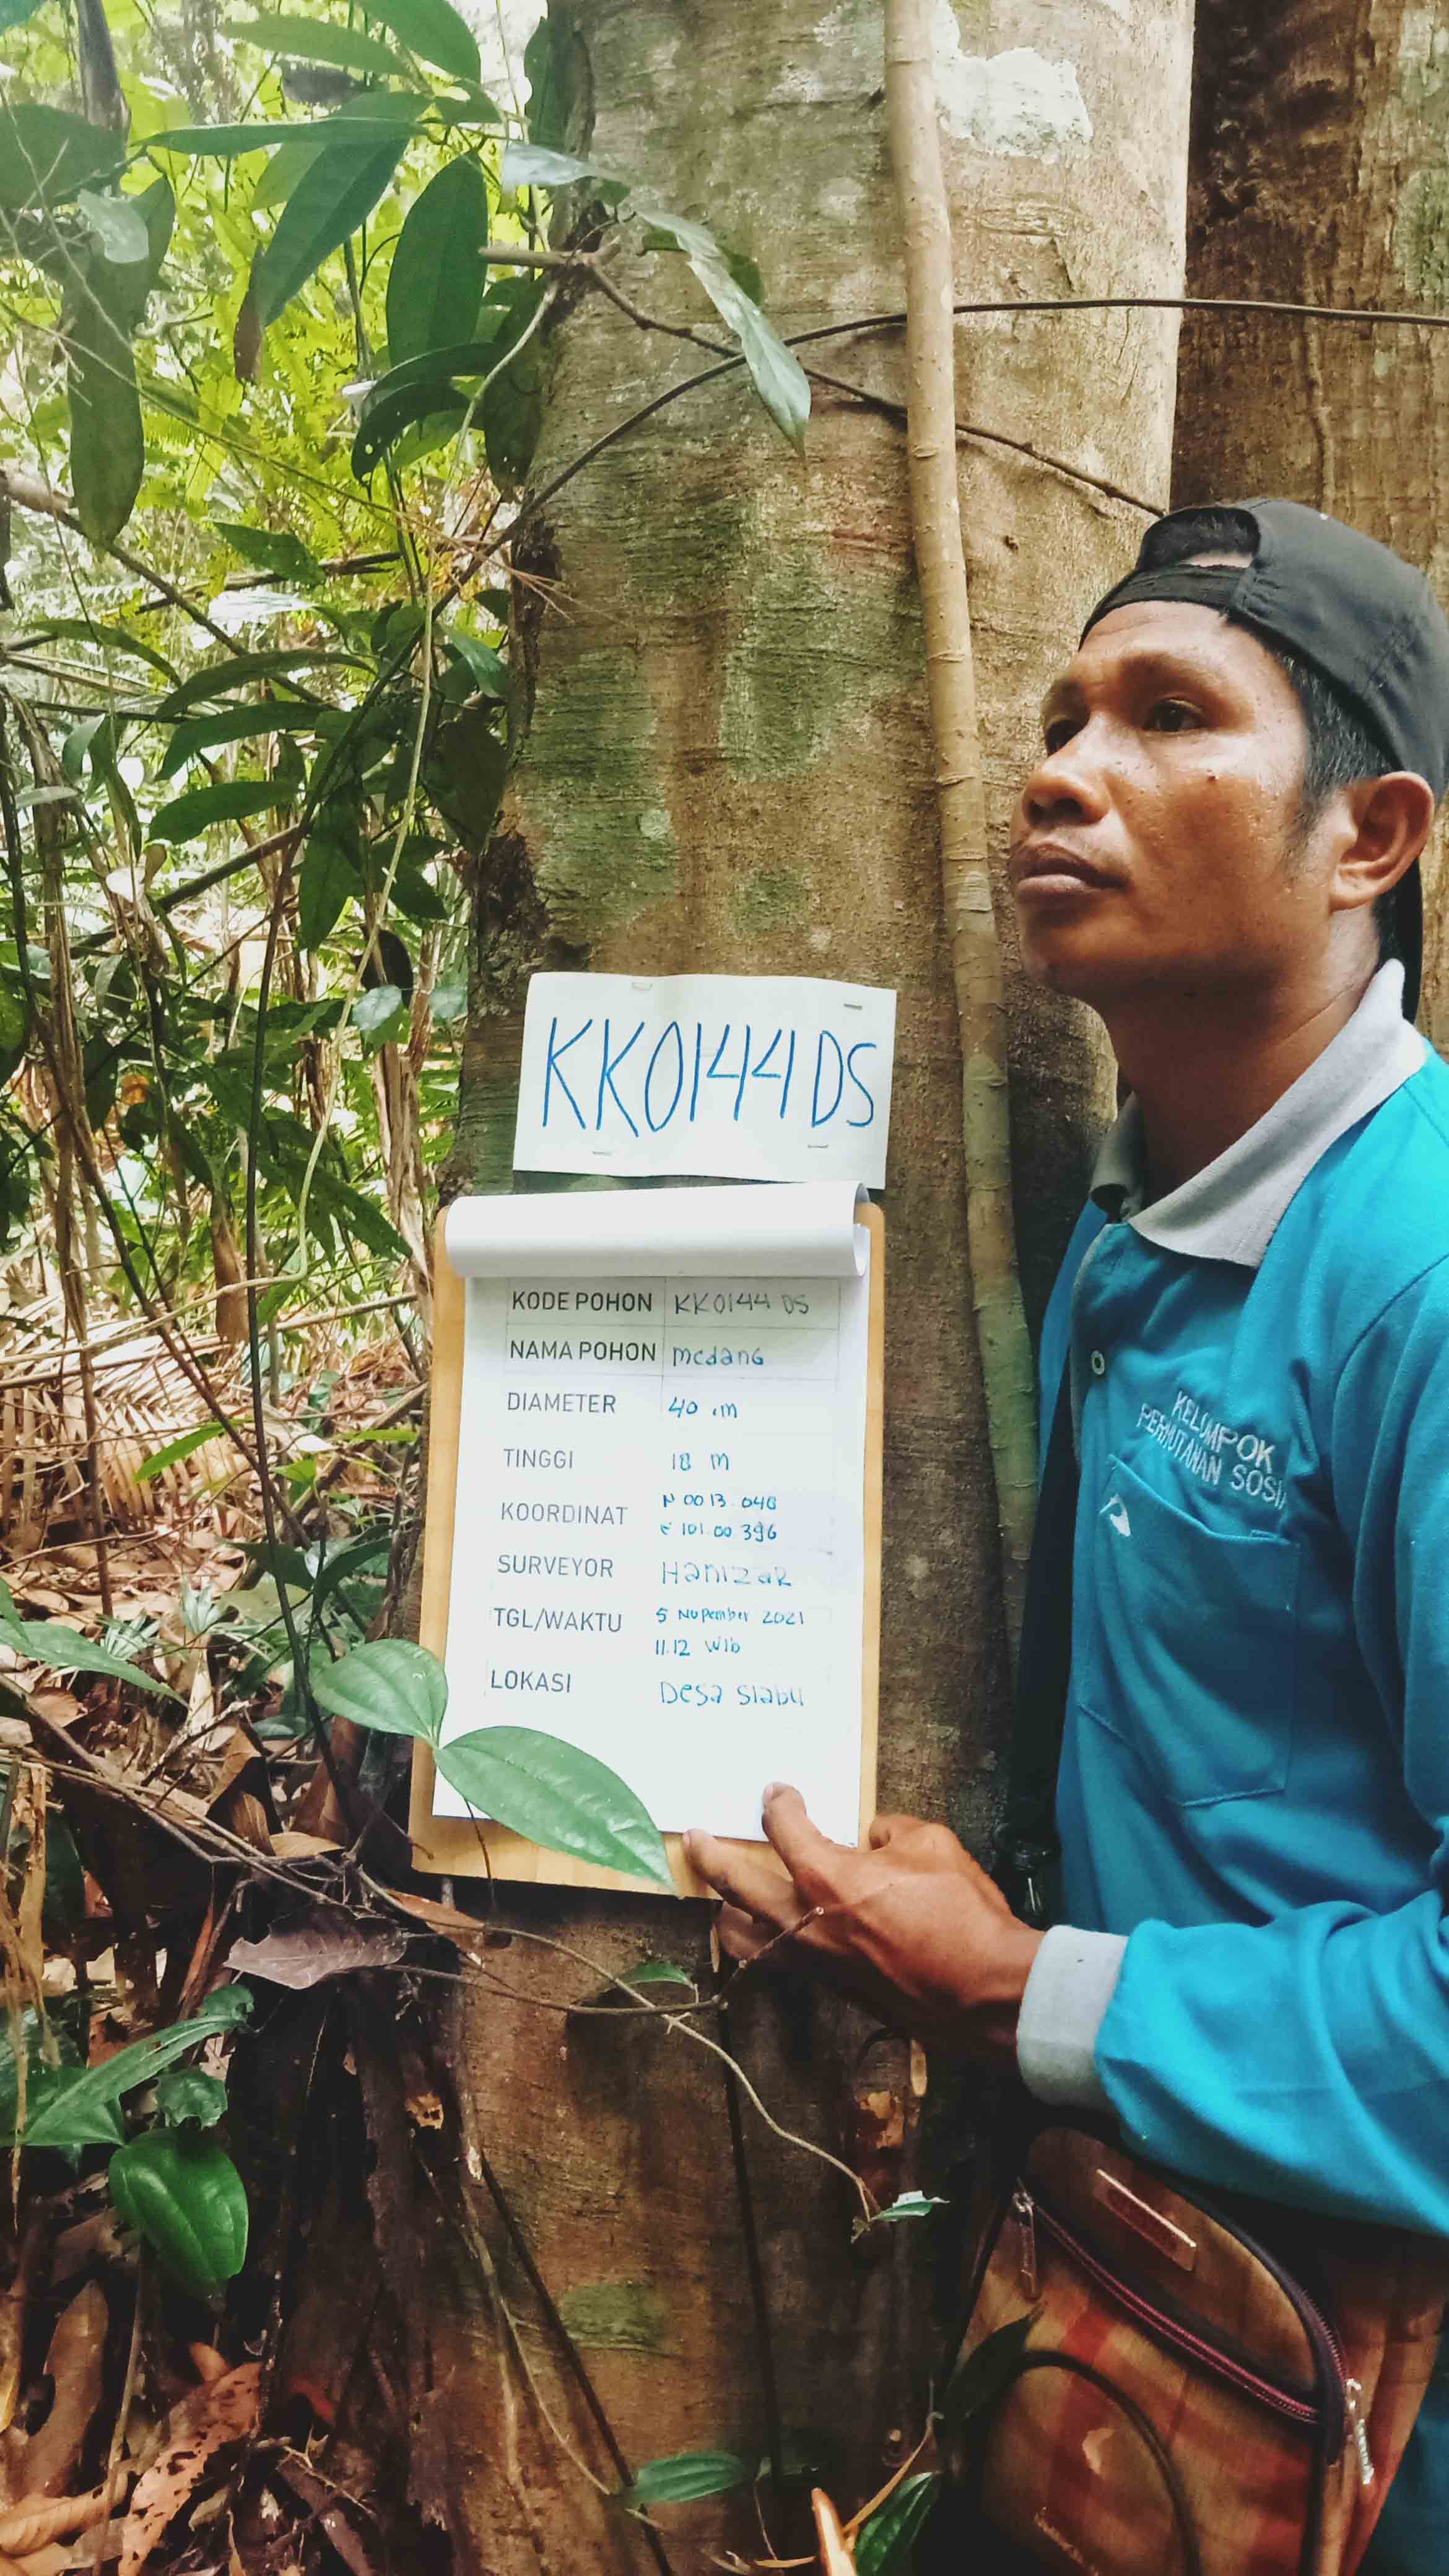 KK0144DS
KODE POHON KK0144 DS
NAMA POHON medanG
DIAMETER 40 cm
TINGGI 18 m
KOORDINAT N 00 13. 048
E 101. 00 396
SURVEYOR HanizaR
TGL/WAKTU 5 Nupember 2021
11.12 Wib
LOKASI Desa siabu
KELOMPOK
PERHUTANAN SOSI